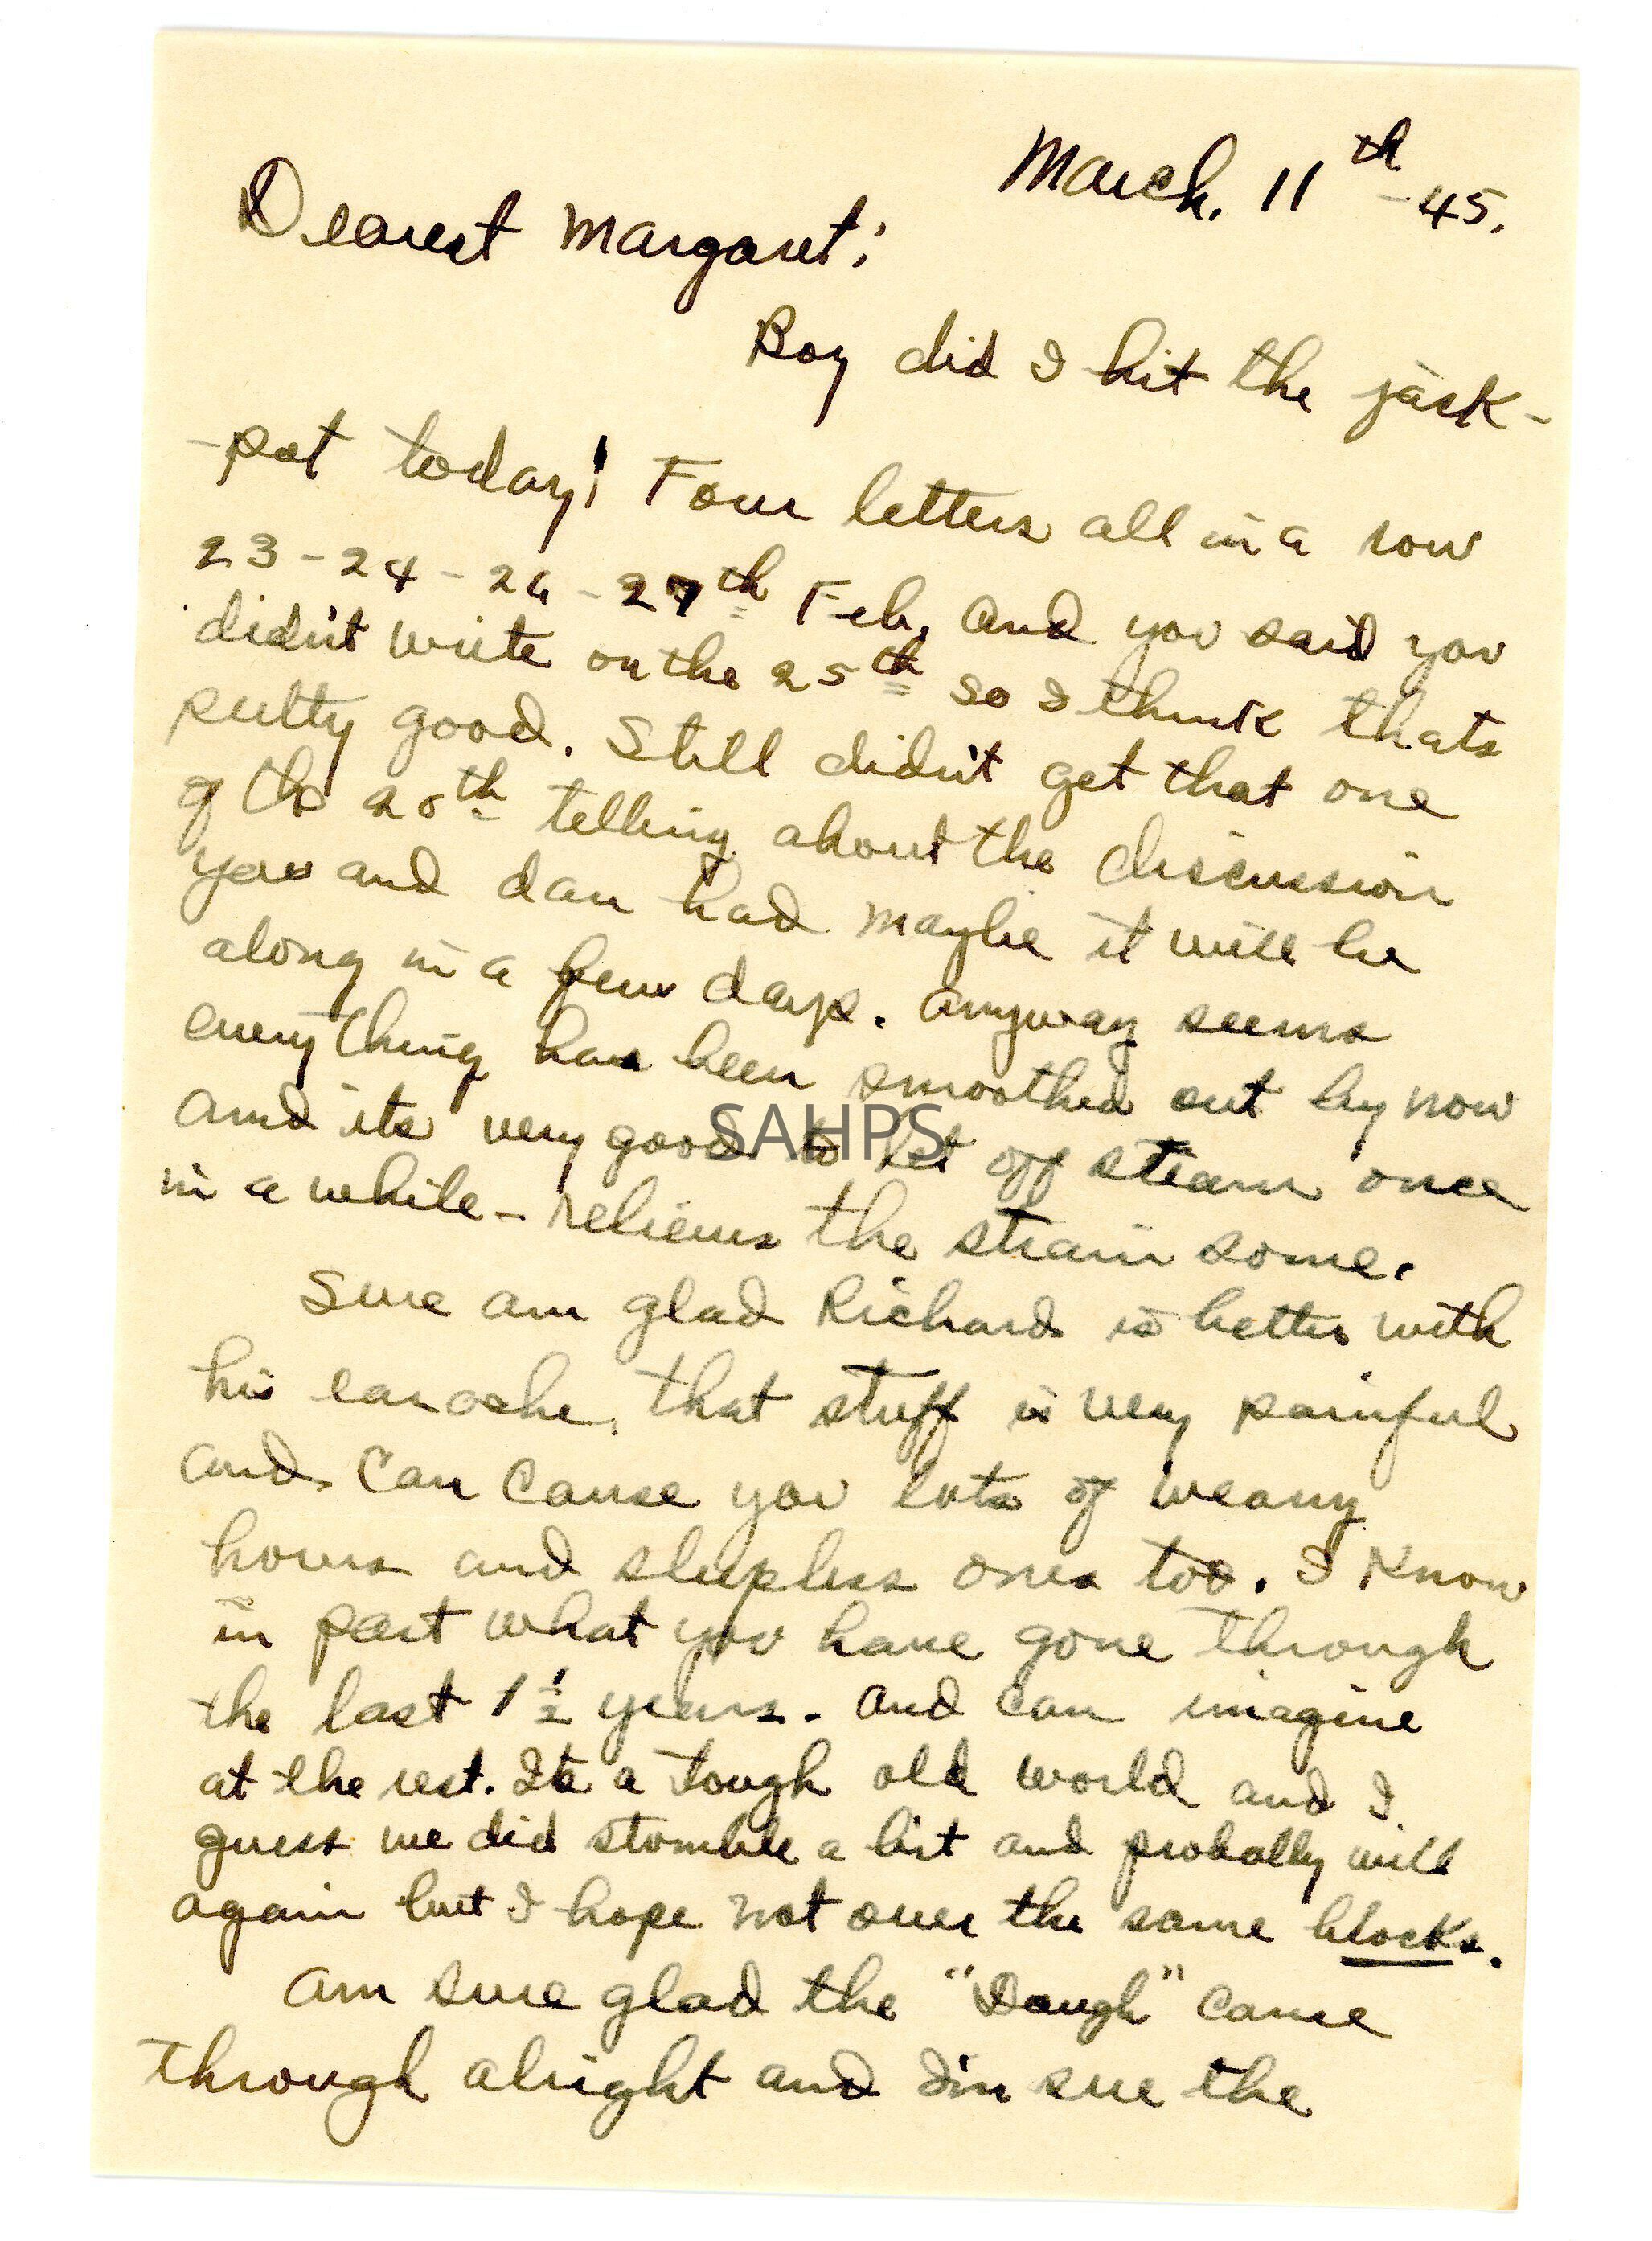 March. 11th - 45.
Dearest Margaret;
Boy did I hit the jack-
-pot today! Four letters all in a row
23 - 24 - 26 - 27th Feb, and you said you
didn't write on the 25th so I think thats
putty good. Still didn't get that one
of the 20th telling about the discussion
you and dan had maybe it will be
along in a few days. Anyway seems
everything has been smoothed out by now
and its very good to let off steam once
in a while - relieves the strain some.
SAHPS
Sure am glad Richard is better with
his earache, that stuff is very painful
and can cause you lots of weary
hours and sleepless ones too. I Know
in part what you have gone through
the last 1 1/2 years - and can imagine
at the rest. Its a tough old world and I
guess we did stomble a bit and probally will
again but I hope not over the same blocks.
Am sure glad the "Dough" came
through alright and Im sure the